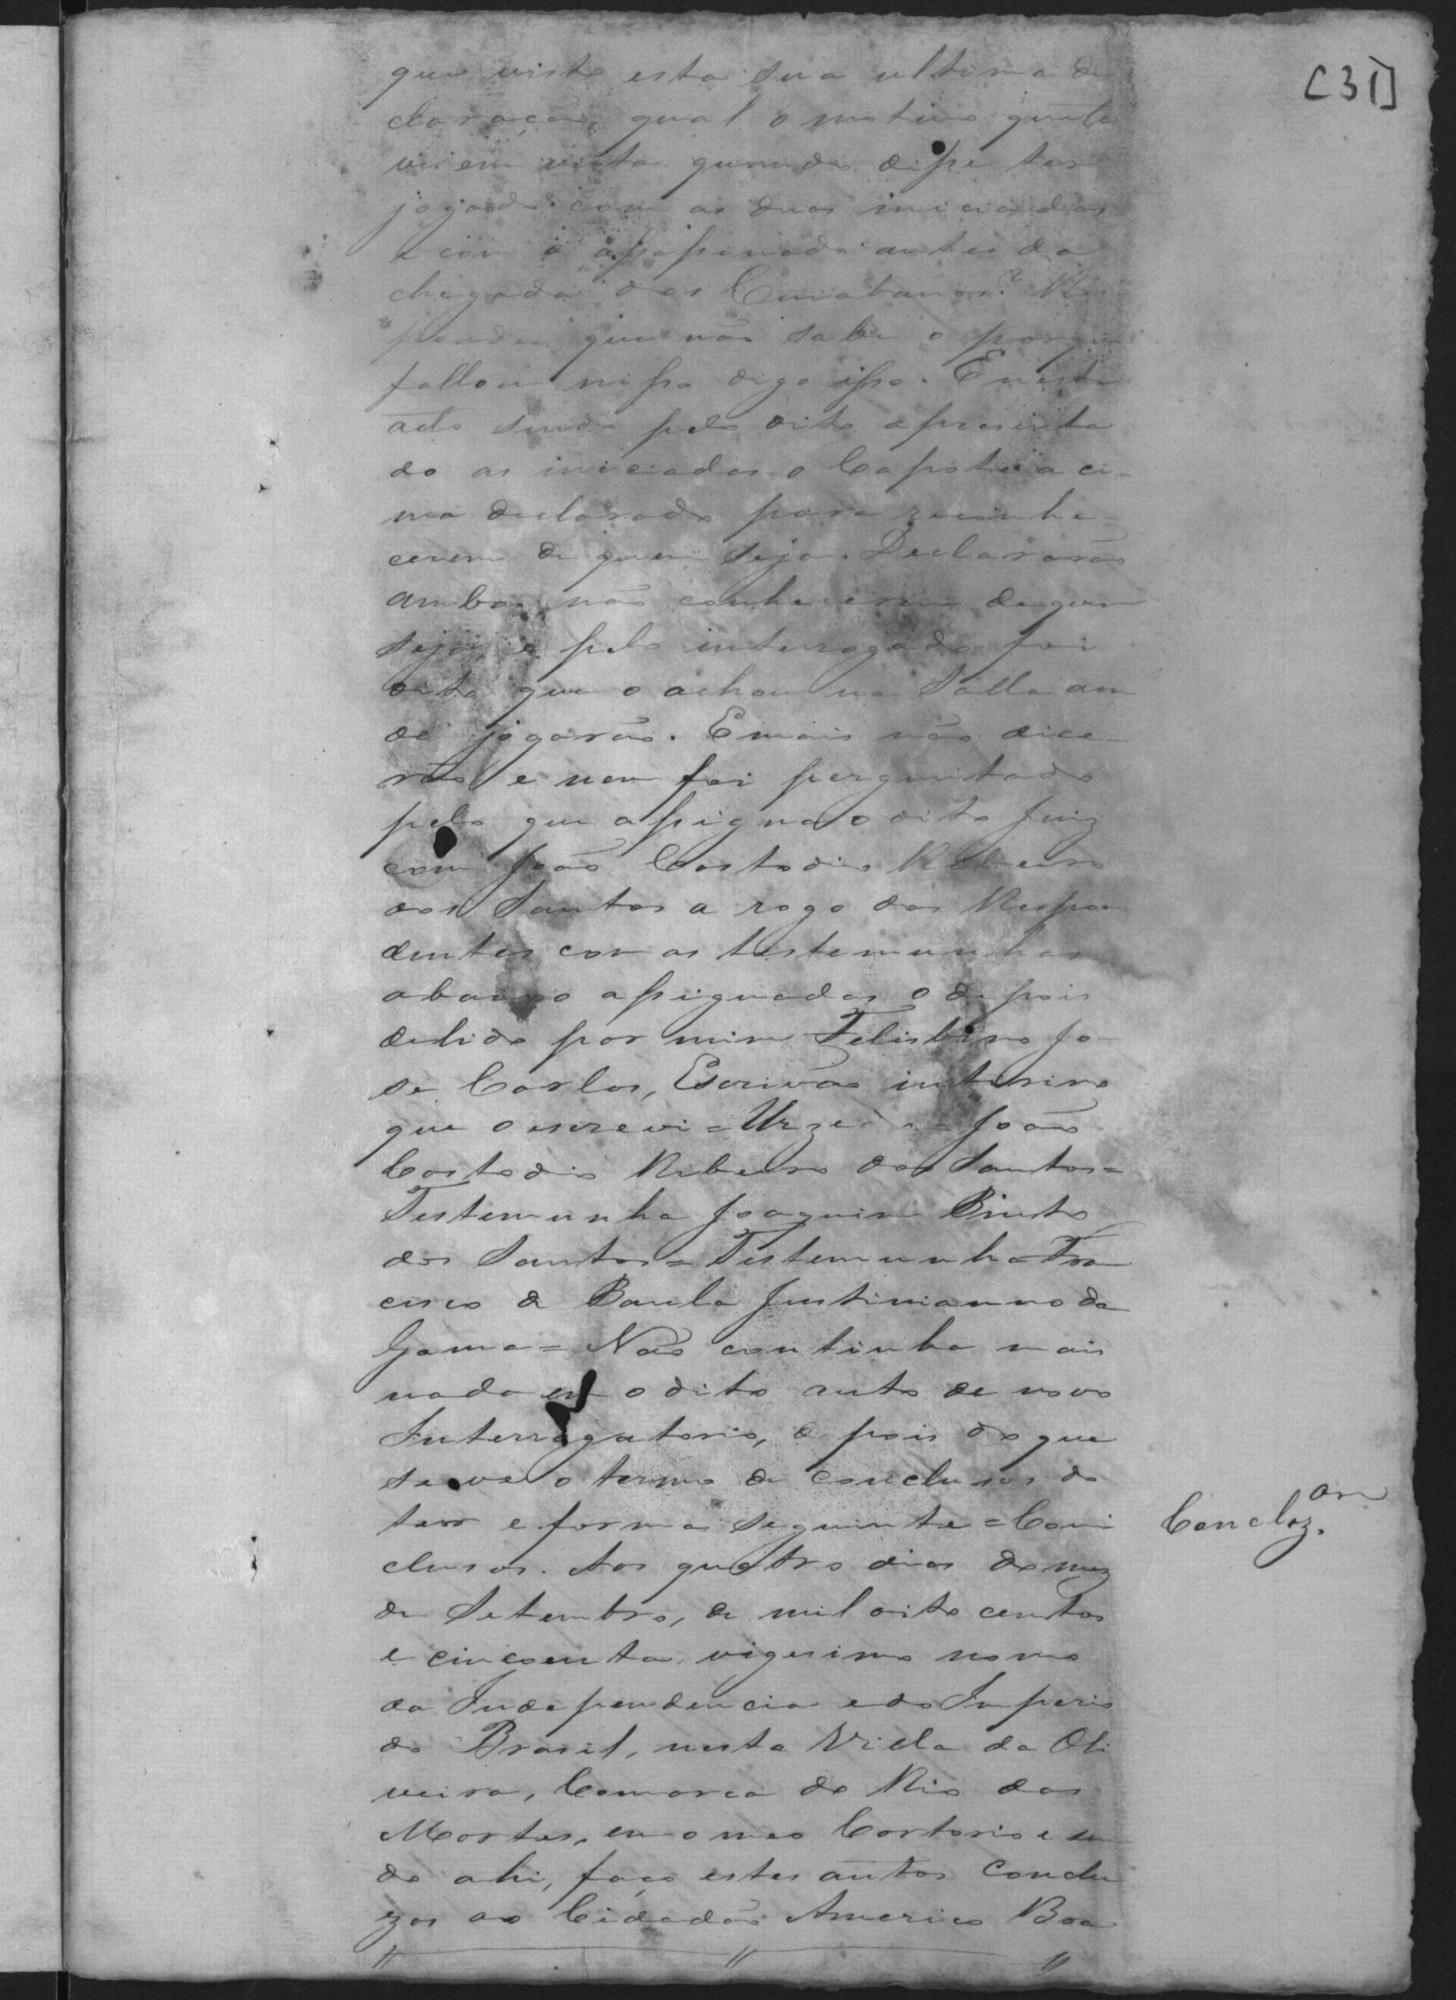 [31]
que visto esta sua ultima de
claração, qual o motivo que te
ve em vista quando disse ter
jogado com as duas iniciadas
e com o apapinado antes da
chegada dos Cuiabanos? Res
pondeu que não sabe o porque
fallou nisso digo isso. E neste
acto sendo pelo dito apresenta
do as iniciadas o Capote a ci-
ma declarado para reconhe-
cerem de quem seja. Declararão
ambas não conhecerem de quem
seja, e pelo interrogado foi
dito que o achou na Salla aon
de jogarão. E mais não dice-
rão e nem foi perguntado
pelo que assigna o dito Juiz
com João Costodio Ribeiro
dos Santos a rogo dos Respon
dentes com as testemunhas
abaixo assignadas o depois
de lido por mim Felisbino Jo-
se Carlos, Escrivão interino
que o escrevi = Urzedo = João
Costodio Ribeiro dos Santos =
Testemunha Joaquim Pinto
dos Santos = Testemunha = Fran
cisco de Paula Justinianno da
Gama = Não continha mais
nada em o dito auto de novo
Interrogatorio, depois do que
se ve o termo de conclusos do
teor e forma seguinte = Con
clusos. Aos quatro dias do mez
de Setembro, de mil oito centos
e cincoenta, vigesimo nono
da Independencia e do Imperio
do Brasil, nesta Villa da Oli
veira, Comarca do Rio das
Mortes, em o meo Cartorio e sen
do ahi, faço estes autos Conclu
zos ao Cidadão Americo Bra
Concloz.am